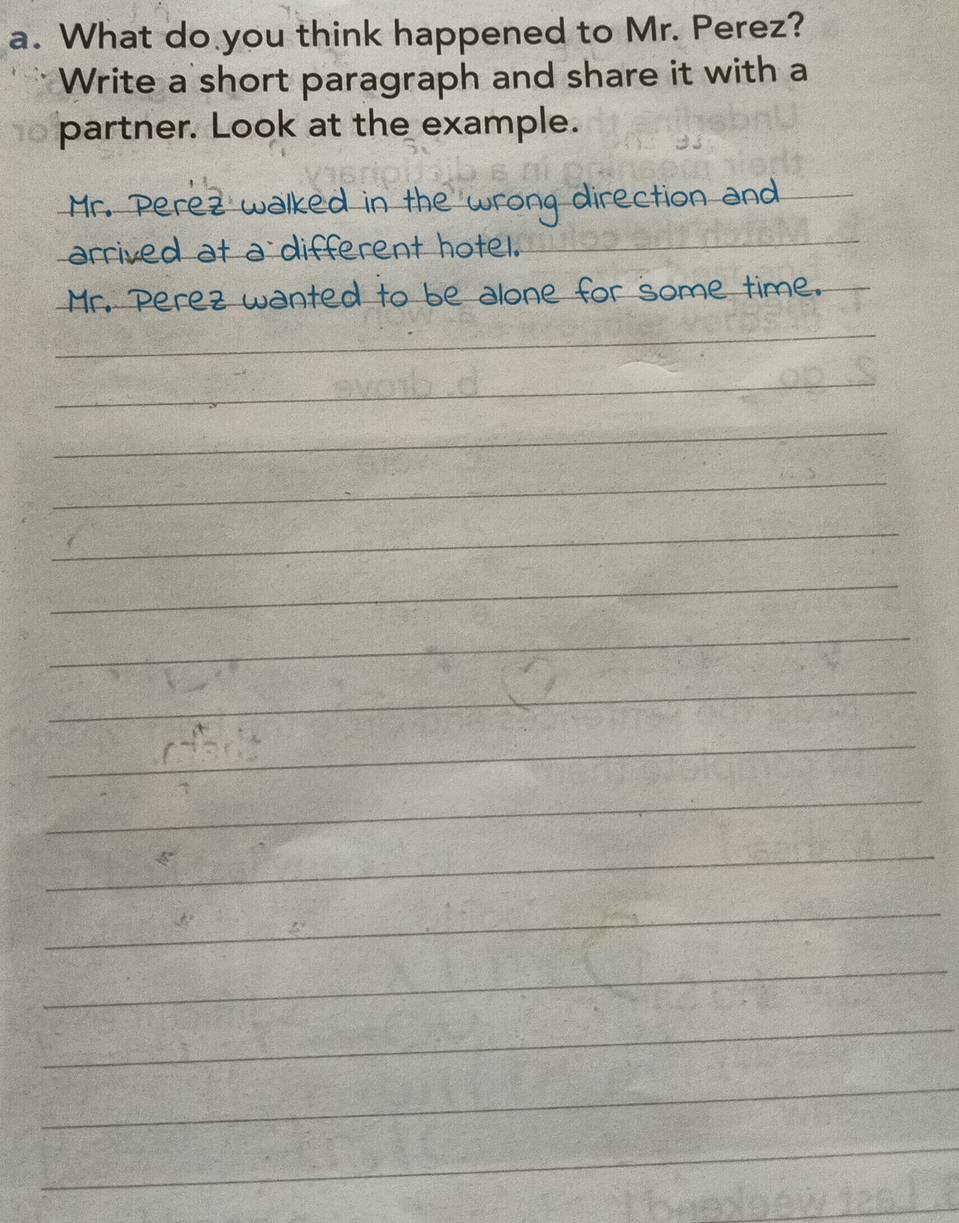 a. What do you think happened to Mr. Perez?
Write a short paragraph and share it with a
partner. Look at the example.
Mr. Perez walked in the wrong direction and
arrived at a different hotel.
Mr. Perez wanted to be alone for some time.